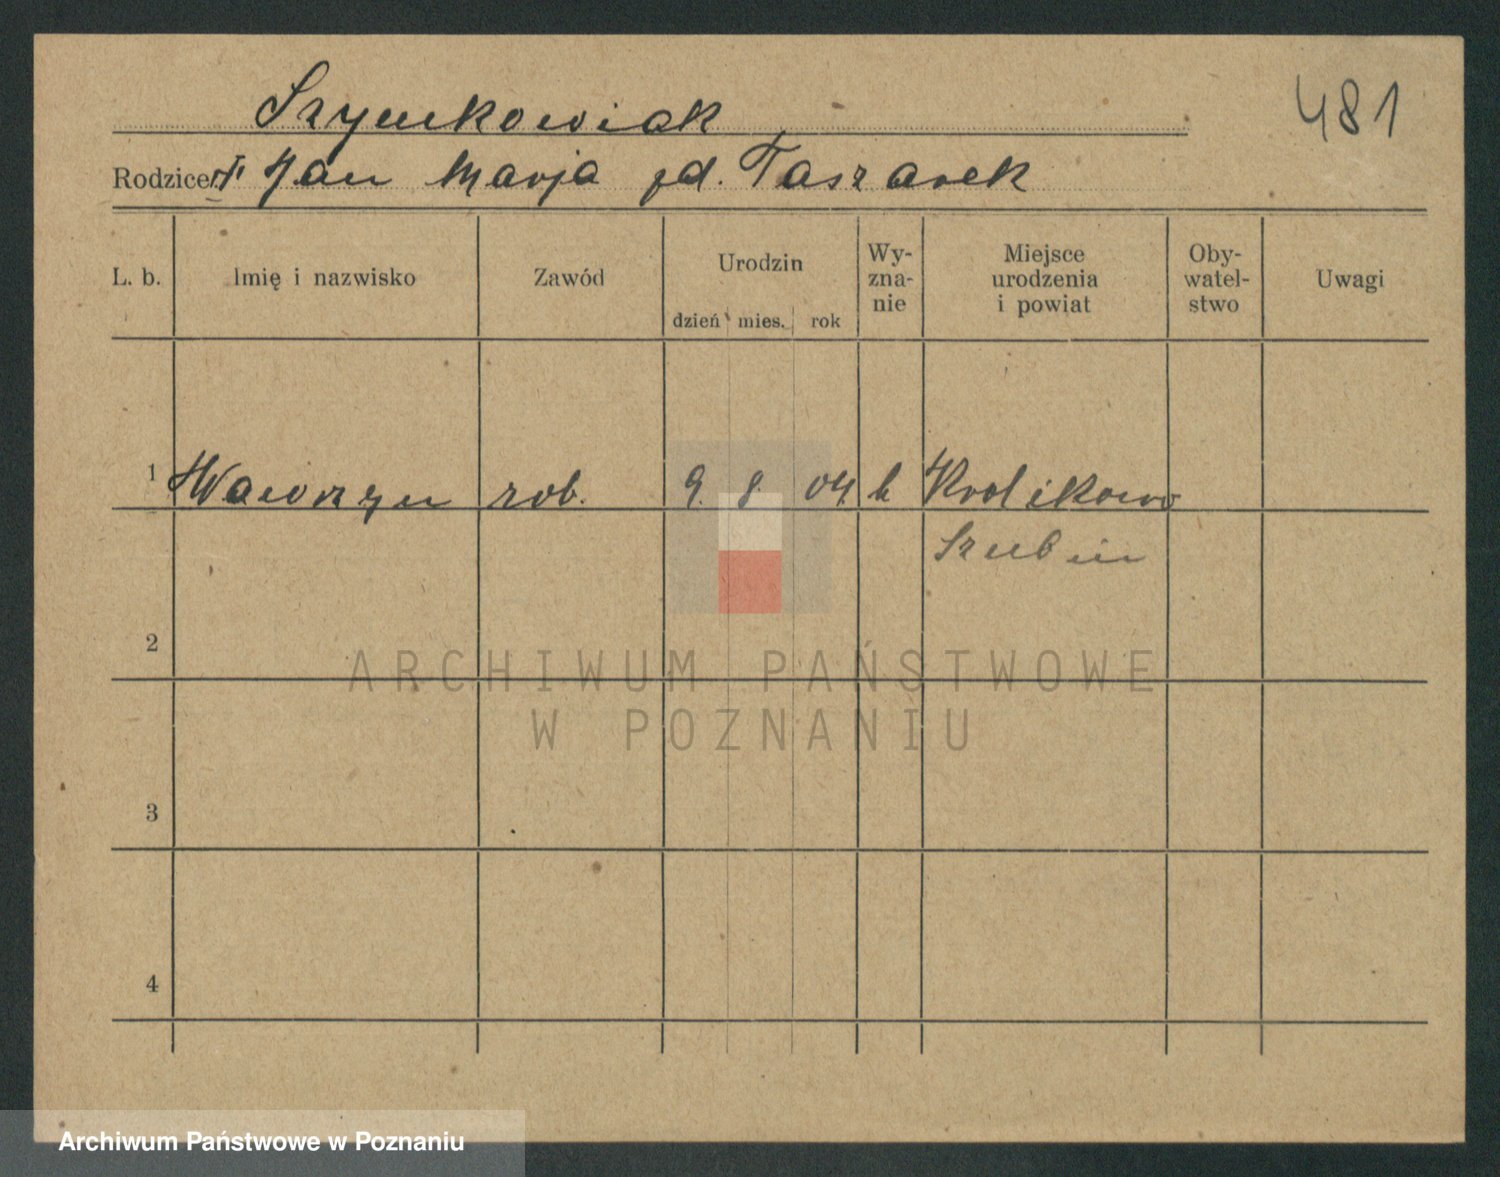 Szymkowiak
481
Rodzice: Jan Marja zd. Taszarek
L. b. Imię i nazwisko Zawód Urodzin dzień mies. rok Wy-zna-nie Miejsce urodzenia i powiat Oby-watel-stwo Uwagi
1 Wawrzyn rob. 9. 8. 04. k Krolikowo
Szubin
2
ARCHIWUM PAŃSTWOWE
W POZNANIU
3
4
Archiwum Państwowe w Poznaniu